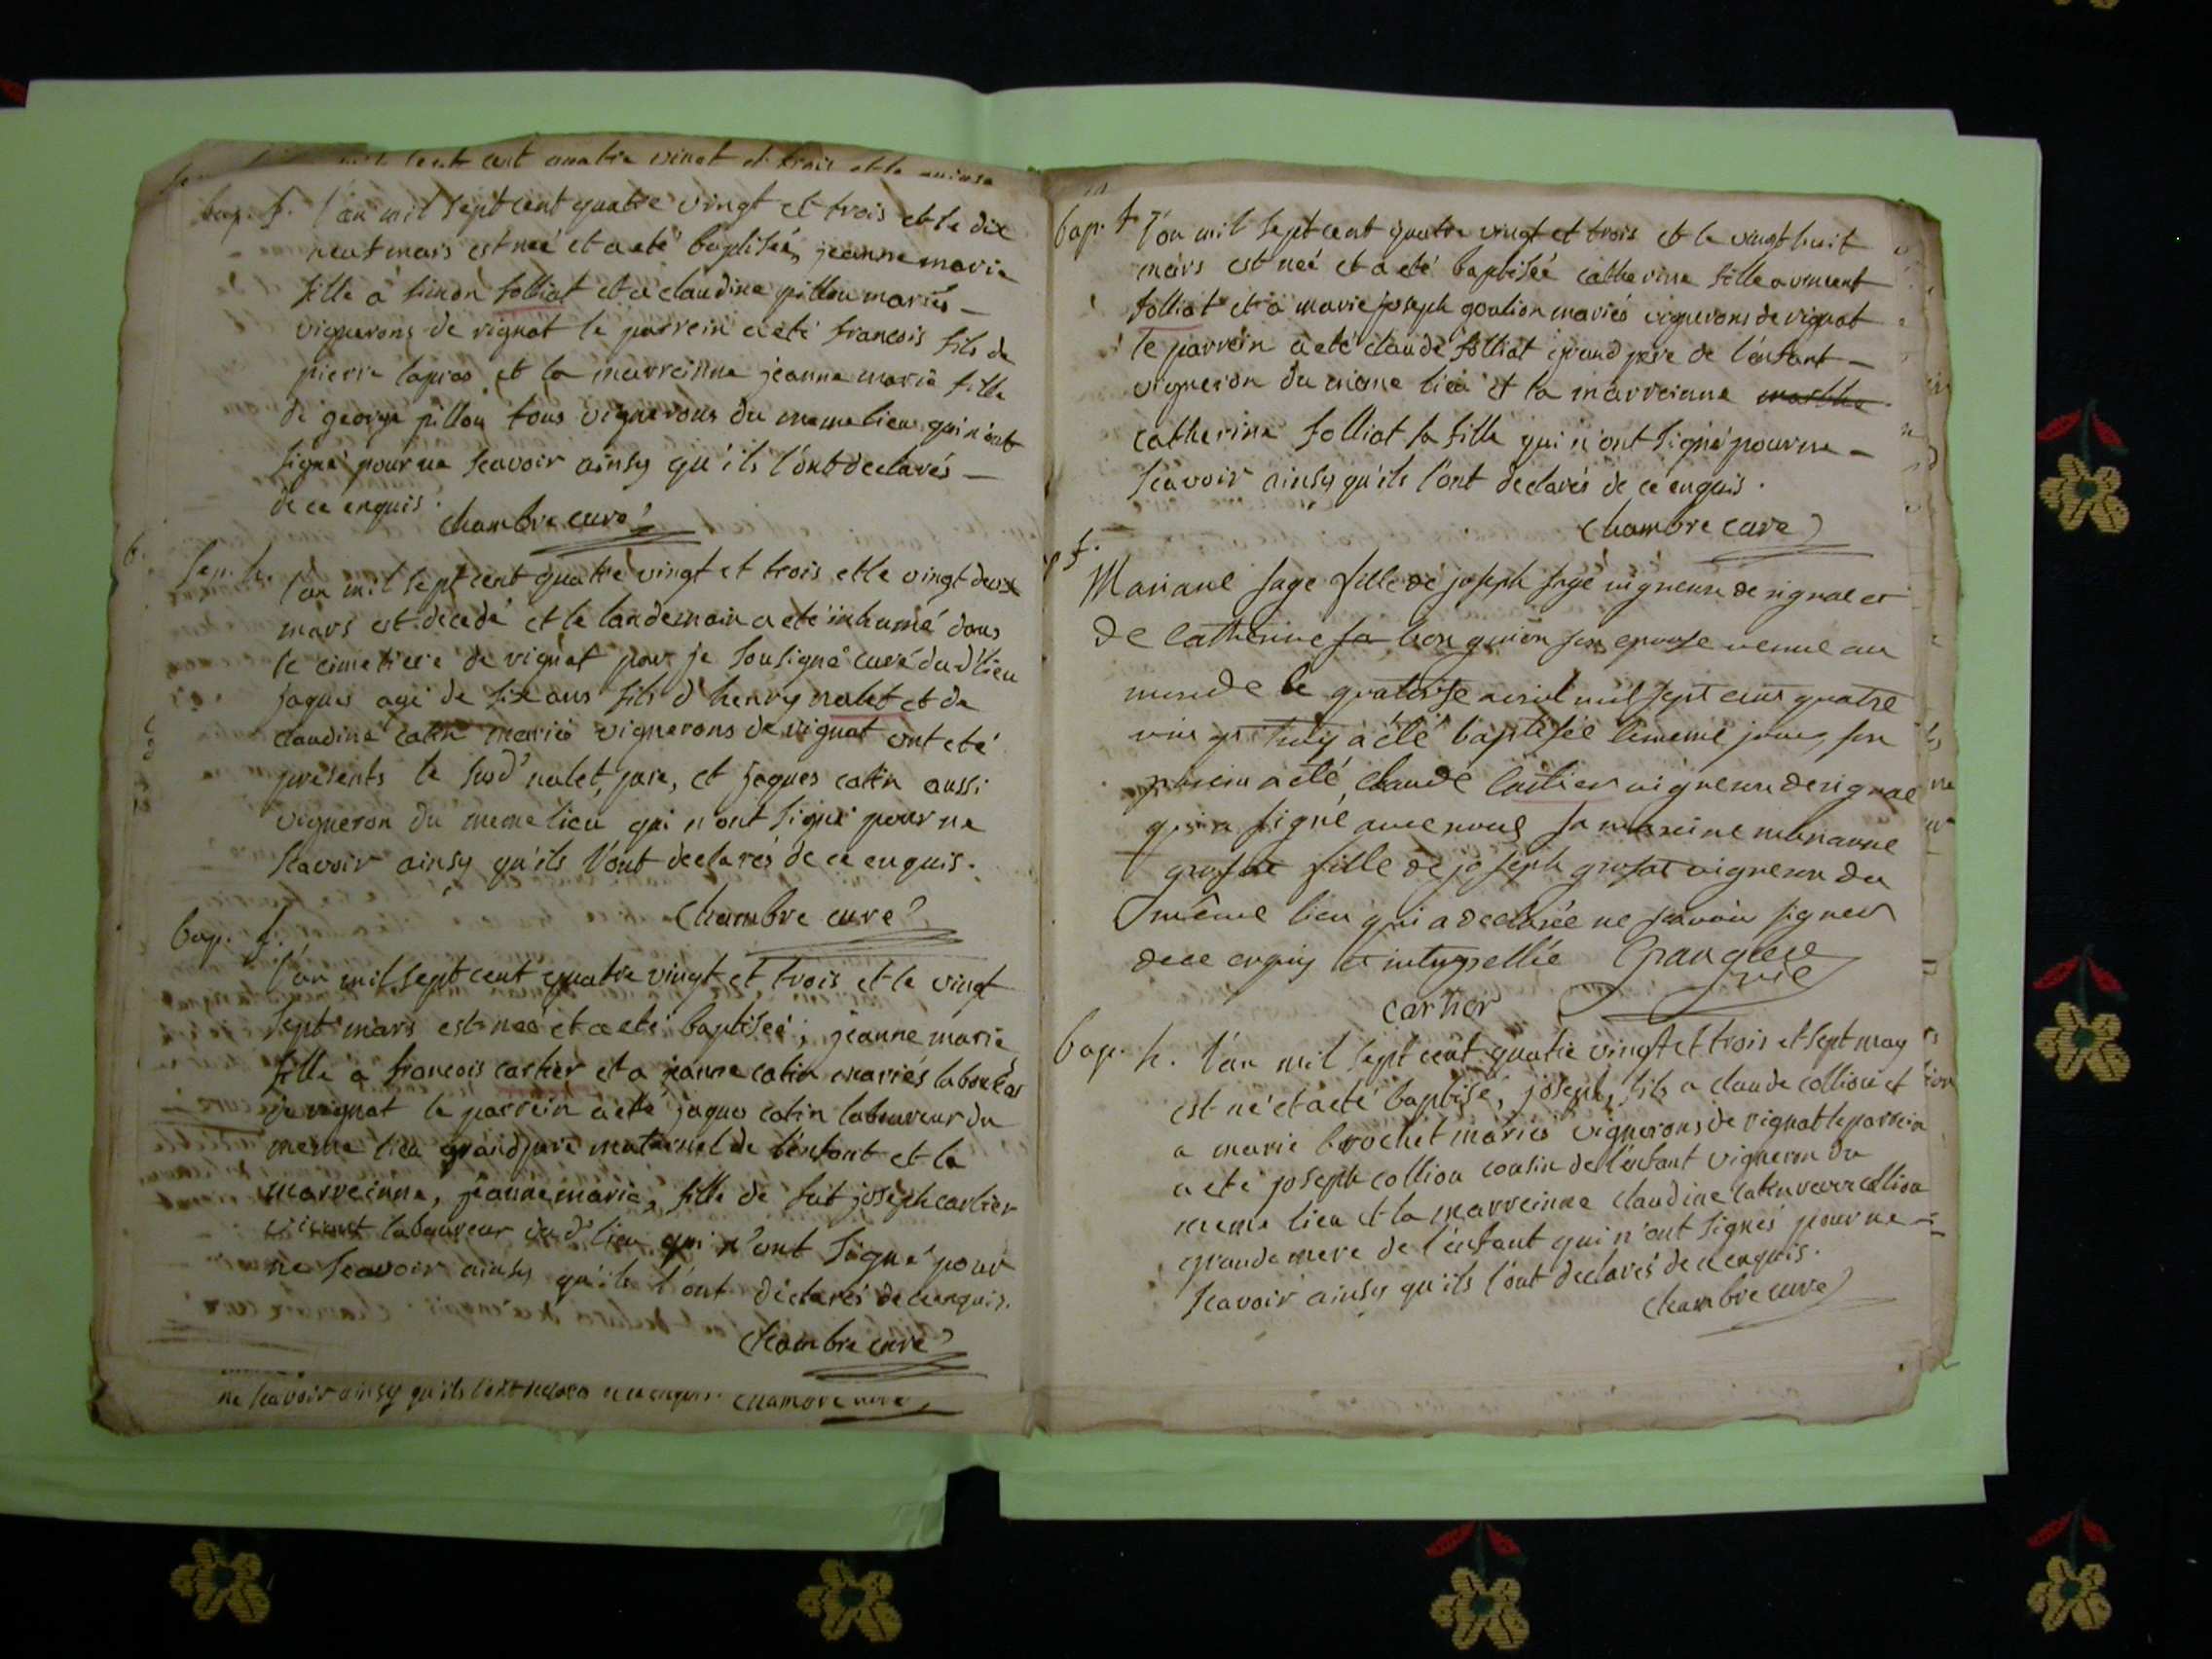 mil sept cent quatre vingt et trois et le quinse
bap. f. l'an mil sept cent quatre vingt et trois et le dix
neuf mars est neé et a eté baptiseé, jeanne marie
fille à simon folliat et a claudine pillou mariés –
vignerons de rignat le parrein a eté francois fils de
pierre lapras et la marreinne jeanne marie fille
de george pillou tous vignerons du meme lieu qui n'ont
signé pour ne scavoir ainsy qu'ils l'ont declarés –
de ce enquis. chambre curé
Sep. h. l'an mil sept cent quatre vingt et trois et le vingt deux
mars est decedé et le landemain a eté inhumé dans
le cimetiere de rignat par je sousigné curé dud' lieu
jaques agé de six ans fils d'henry nalet et de
claudine catin mariés vignerons de rignat ont eté
presents le susd' nalet, pere, et jaques catin aussi
vigneron du meme lieu qui n'ont signé pour ne
scavoir ainsy qu'ils l'ont declarés de ce enquis.
Chambre curé
bap. f.
l'an mil sept cent quatre vingt et trois et le vingt
sept mars est neé et a eté baptiseé; jeanne marie
fille a francois cartier et a jeanne catin mariés laboureurs
de rignat le parrein a eté jaques catin laboureur du
meme lieu grand pere maternel de l'enfant et la
marreinne, jeanne marie, fille de fut joseph cartier
vivant laboureur dud' lieu qui n'ont signé pour
ne scavoir ainsy qu'ils l'ont déclarés de ce enquis.
Chambre curé
ne scavoir ainsy qu'ils l'ont declarés de ce enquis. chambre curé
bap. f. l'an mil sept cent quatre vingt et trois et le vingt huit
mars est neé et a eté baptiseé catherine fille a vincent
folliat et a marie joseph goulion mariés vignerons de rignat
le parrein a eté claude folliat grand pere de l'enfant –
vigneron du meme lieu et la marreinne marthe
catherine folliat sa fille qui n'ont signé pour ne –
scavoir ainsy qu'ils l'ont declarés de ce enquis.
Chambre curé
f.
Mariane sage fille de joseph sage vigneron de rignat et
de catherine son epouse venue au
monde le quatorse avril mil sept cens quatre
vingt troy a été baptisée le meme jour, son
parein a été claude cartier vigneron de rignat
qui a signé avec nous sa mareine marianne
grosat fille de joseph grosat vigneron du
même lieu qui a declarée ne scavoir signer
de ce enquis et interpellée
cartier
bap. h. l'an mil sept cent quatre vingt et trois et sept may
est né et a eté baptisé, joseph, fils a claude colliou et
a marie brochet mariés vignerons de rignat le parrein
a eté joseph colliou cousin de l'enfant vigneron du
meme lieu et la marreinne claudine catin veuve colliou
grande mere de l'enfant qui n'ont signés pour ne –
scavoir ainsy qu'ils l'ont declarés de ce enquis.
Chambre curé